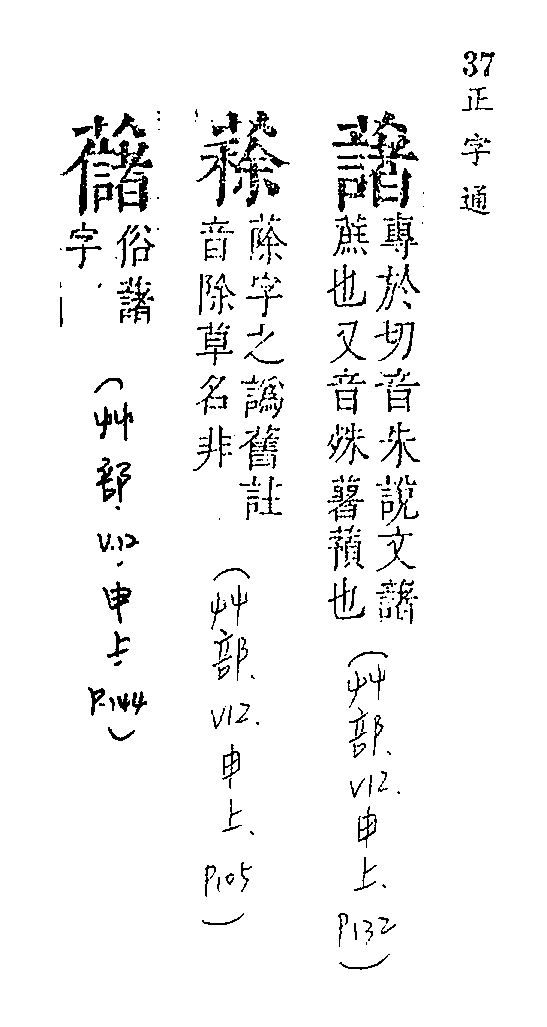 37 正字通
藷
專於切音朱說文藷
蔗也又音殊薯蕷也
(艸部. V12. 申上. P.132)
蒢字之譌舊註
音除草名非
(艸部. V12. 申上. P.105)
俗藷
字
(艸部. V.12. 申上. P.144)